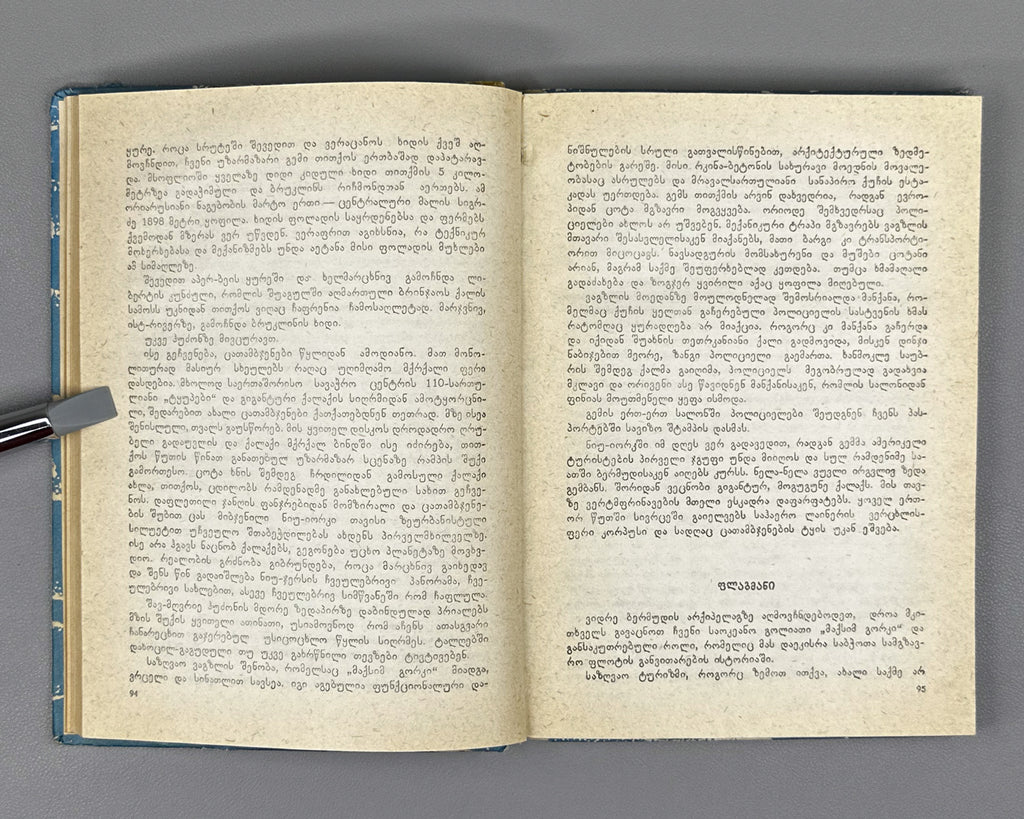 ყურე. როცა სრუტეში შევედით და ვერაცანოს ხიდის ქვეშ აღ-
მოვჩნდით, ჩვენი უზარმაზარი გემი თითქოს ერთბაშად დაპატარავ-
და. მსოფლიოში ყველაზე დიდი კიდული ხიდი თითქმის 5 კილო-
მეტრზეა გადაჭიმული და ბრუკლინს რიჩმონდთან აერთებს. ამ
ორიარუსიანი ნაგებობის მარტო ერთი — ცენტრალური მალის სიგრ-
ძე 1898 მეტრი ყოფილა. ხიდის ფოლადის საყრდენებსა და ფერმებს
ქვემოდან მზერას ვერ უწვდენ. ვერაფრით აგიხსნია, რა ტექნიკურ
მოხერხებასა და მექანიზმებს უნდა აეტანა მისი ფოლადის მუხლები
ამ სიმაღლეზე.
შევედით აპერ-ბეის ყურეში და ხელმარცხნივ გამოჩნდა ლი-
ბერტის კუნძული, რომლის შუაგულში აღმართული ბრინჯაოს ქალის
სამოსს უკნიდან თითქოს ვიღაც ჩაფრენია ჩამოსაღლეტად. მარჯვნივ,
ისტ-რივერზე, გამოჩნდა ბრუკლინის ხიდი.
უკვე ჰუძონზე მივცურავთ.
ისე გეჩვენება, ცათამბჯენები წყლიდან ამოდიანო. მათ მონო-
ლითურად მასიურ სხეულებს რაღაც ულიმღამო მქრქალი ფერი
დასდებია. მხოლოდ საერთაშორისო სავაჭრო ცენტრის 110-სართუ-
ლიანი „ტყუპები“ და გიგანტური ქალაქის სიღრმიდან ამოტყორცნი-
ლი, შედარებით ახალი ცათამბჯენები ქათქათებდნენ თეთრად. მზე ისეა
შენისლული, თვალს გაუსწორებ. მის ყვითელ დისკოს დროდადრო ღრუ-
ბელი გადაუვლის და ქალაქი მქრქალ ბინდში ისე იძირება, თით-
ქოს წუთის წინათ განათებულ უზარმაზარ სცენაზე რამპის შუქი
გამორთესო. ცოტა ხნის შემდეგ ჩრდილიდან გამოსული ქალაქი
ახლა, თითქოს, ცდილობს რამდენადმე განახლებული სახით გეჩვე-
ნოს. დაფლეთილი ჯანღის ფანჯრებიდან მომზირალი და ცათამბჯენე-
ბის შუბით ცას მიბჯენილი ნიუ-იორკი თავისი ზეურბანისტული
სილუეტით უჩვეულო შთაბეჭდილებას ახდენს პირველმხილველზე.
ისე არა ჰგავს ნაცნობ ქალაქებს, გეგონება უცხო პლანეტაზე მოვხვ-
დიო. რეალობის გრძნობა გიბრუნდება, როცა მარცხნივ გაიხედავ
და შენს წინ გადაიშლება ნიუ-ჯერსის ჩვეულებრივი პანორამა, ჩვე-
ულებრივი სახლებით, ასევე ჩვეულებრივ სიმწვანეში რომ ჩაფლულა.
შავ-მღვრიე ჰუძონის მდორე ზედაპირზე დაბინდულად პრიალებს
მზის შუქის ყვითელი ათინათი, უსიამოვნოდ რომ აჩენს ათასგვარი
ჩანარეცხით გაჯერებულ უსიცოცხლო წყლის სიღრმეს. ტალღებში
დახოცილ-გაგუდული თუ უკვე გახრწნილი თევზები ტივტივებენ.
საზღვაო ვაგზლის შენობა, რომელსაც „მაქსიმ გორკი“ მიადგა,
ვრცელი და სინათლით სავსეა. იგი აგებულია ფუნქციონალური და-
94
ნიშნულების სრული გათვალისწინებით, არქიტექტურული ზედმე-
ტობების გარეშე. მისი რკინა-ბეტონის სახურავი მოედნის მოვალე-
ობასაც ასრულებს და მრავალსართულიანი სანაპირო ქუჩის ესტა-
კადას უერთდება. გემს თითქმის არვინ დახვედრია, რადგან ევრო-
პიდან ცოტა მგზავრი მოგვყვება. ორიოდე შემხვედრსაც პოლი-
ციელები ახლოს არ უშვებენ. მექანიკური ტრაპი მგზავრებს ვაგზლის
მთავარი შესასვლელისაკენ მიაქანებს, მათი ბარგი კი ტრანსპორტი-
ორით მიცოცავს. ნავსადგურის მომსახურენი და მუშები ცოტანი
არიან, მაგრამ საქმე შეუფერხებლად კეთდება. თუმცა ხმამაღალი
გადაძახება და ზოგჯერ ყვირილი აქაც ყოფილა მიღებული.
ვაგზლის მოედანზე მოულოდნელად შემოსრიალდა მანქანა, რო-
მელმაც ქუჩის ყელთან გაჩერებული პოლიციელის სასტვენის ხმას
რატომღაც ყურადღება არ მიაქცია. როგორც კი მანქანა გაჩერდა
და იქიდან შუახნის თეთრკანიანი ქალი გადმოვიდა, მისკენ დინჯი
ნაბიჯებით მეორე, ზანგი პოლიციელი გაემართა. ხანმოკლე საუბ-
რის შემდეგ ქალმა გაიღიმა, პოლიციელს მეგობრულად გადახვია
მკლავი და ორივენი ისე წავიდნენ მანქანისაკენ, რომლის სალონიდან
ფინიას მოუთმენელი ყეფა ისმოდა.
გემის ერთ-ერთ სალონში პოლიციელები შეუდგნენ ჩვენს პას-
პორტებში სავიზო შტამპის დასმას.
ნიუ-იორკში იმ დღეს ვერ გადავედით, რადგან გემმა ამერიკელი
ტურისტების პირველი ჯგუფი უნდა მიიღოს და სულ რამდენიმე სა-
ათში ბერმუდისაკენ აიღებს კურსს. ნელა-ნელა ვუვლი ირგვლივ ზედა
გემბანს. შორიდან ვეცნობი გიგანტურ, მოგუგუნე ქალაქს. მის თავ-
ზე ვერტმფრინავების მთელი ესკადრა დაფარფატებს. ყოველ ერთ-
ორ წუთში სივრცეში გაიელვებს საჰაერო ლაინერის ვერცხლის-
ფერი კორპუსი და სადღაც ცათამბჯენების ტყის უკან ეშვება.
ფლაგმანი
ვიდრე ბერმუდის არქიპელაგზე აღმოვჩნდებოდეთ, დროა მკი-
თხველს გავაცნოთ ჩვენი საოკეანო გოლიათი „მაქსიმ გორკი“ და
განსაკუთრებული როლი, რომელიც მას დაეკისრა საბჭოთა სამგზავ-
რო ფლოტის განვითარების ისტორიაში.
საზღვაო ტურიზმი, როგორც ზემოთ ითქვა, ახალი საქმე არ
95